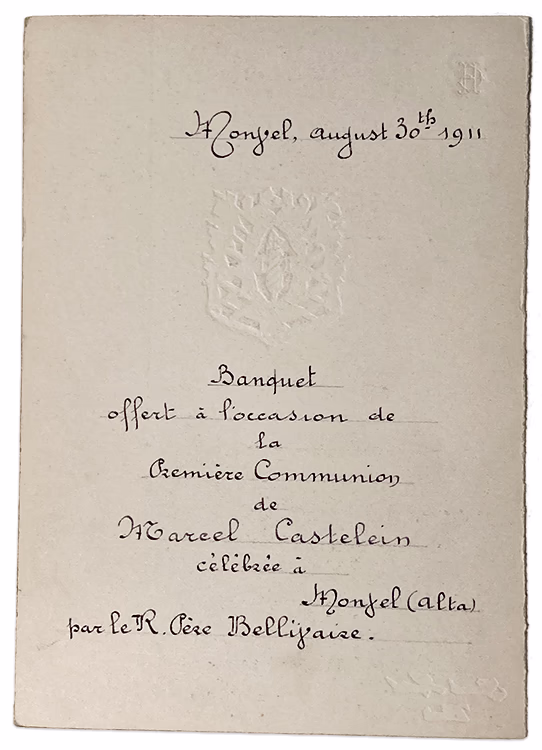 Monvel, august 30th 1911
Banquet
offert à l'occasion de
la
Première Communion
de
Marcel Castelein
célébrée à
Monvel (Alta)
par le R. Père Bellivaire.